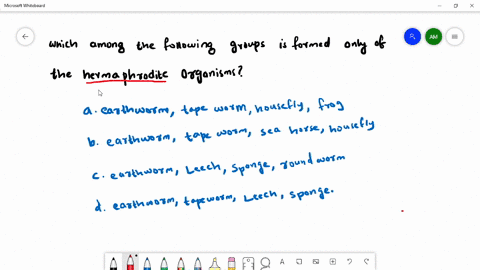 Microsoft Whiteboard
AM
which among the following groups is formed only of
the hermaphrodite organisms?
a. earthworm, tape worm, housefly, frog
b. earthworm, tape worm, sea horse, housefly
c. earthworm, Leech, sponge, round worm
d. earthworm, tapeworm, Leech, sponge.
A